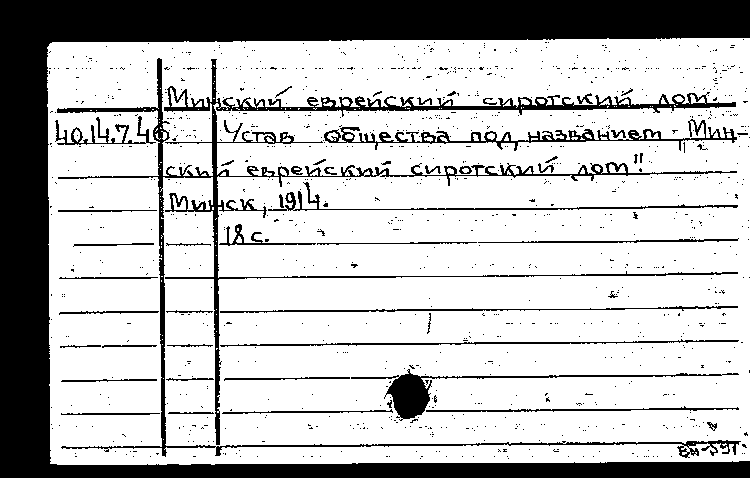 Минский еврейский сиротский дом.
40.14.7.46. Устав общества под названием "Мин-
ский еврейский сиротский дом".
Минск, 1914.
18 с.